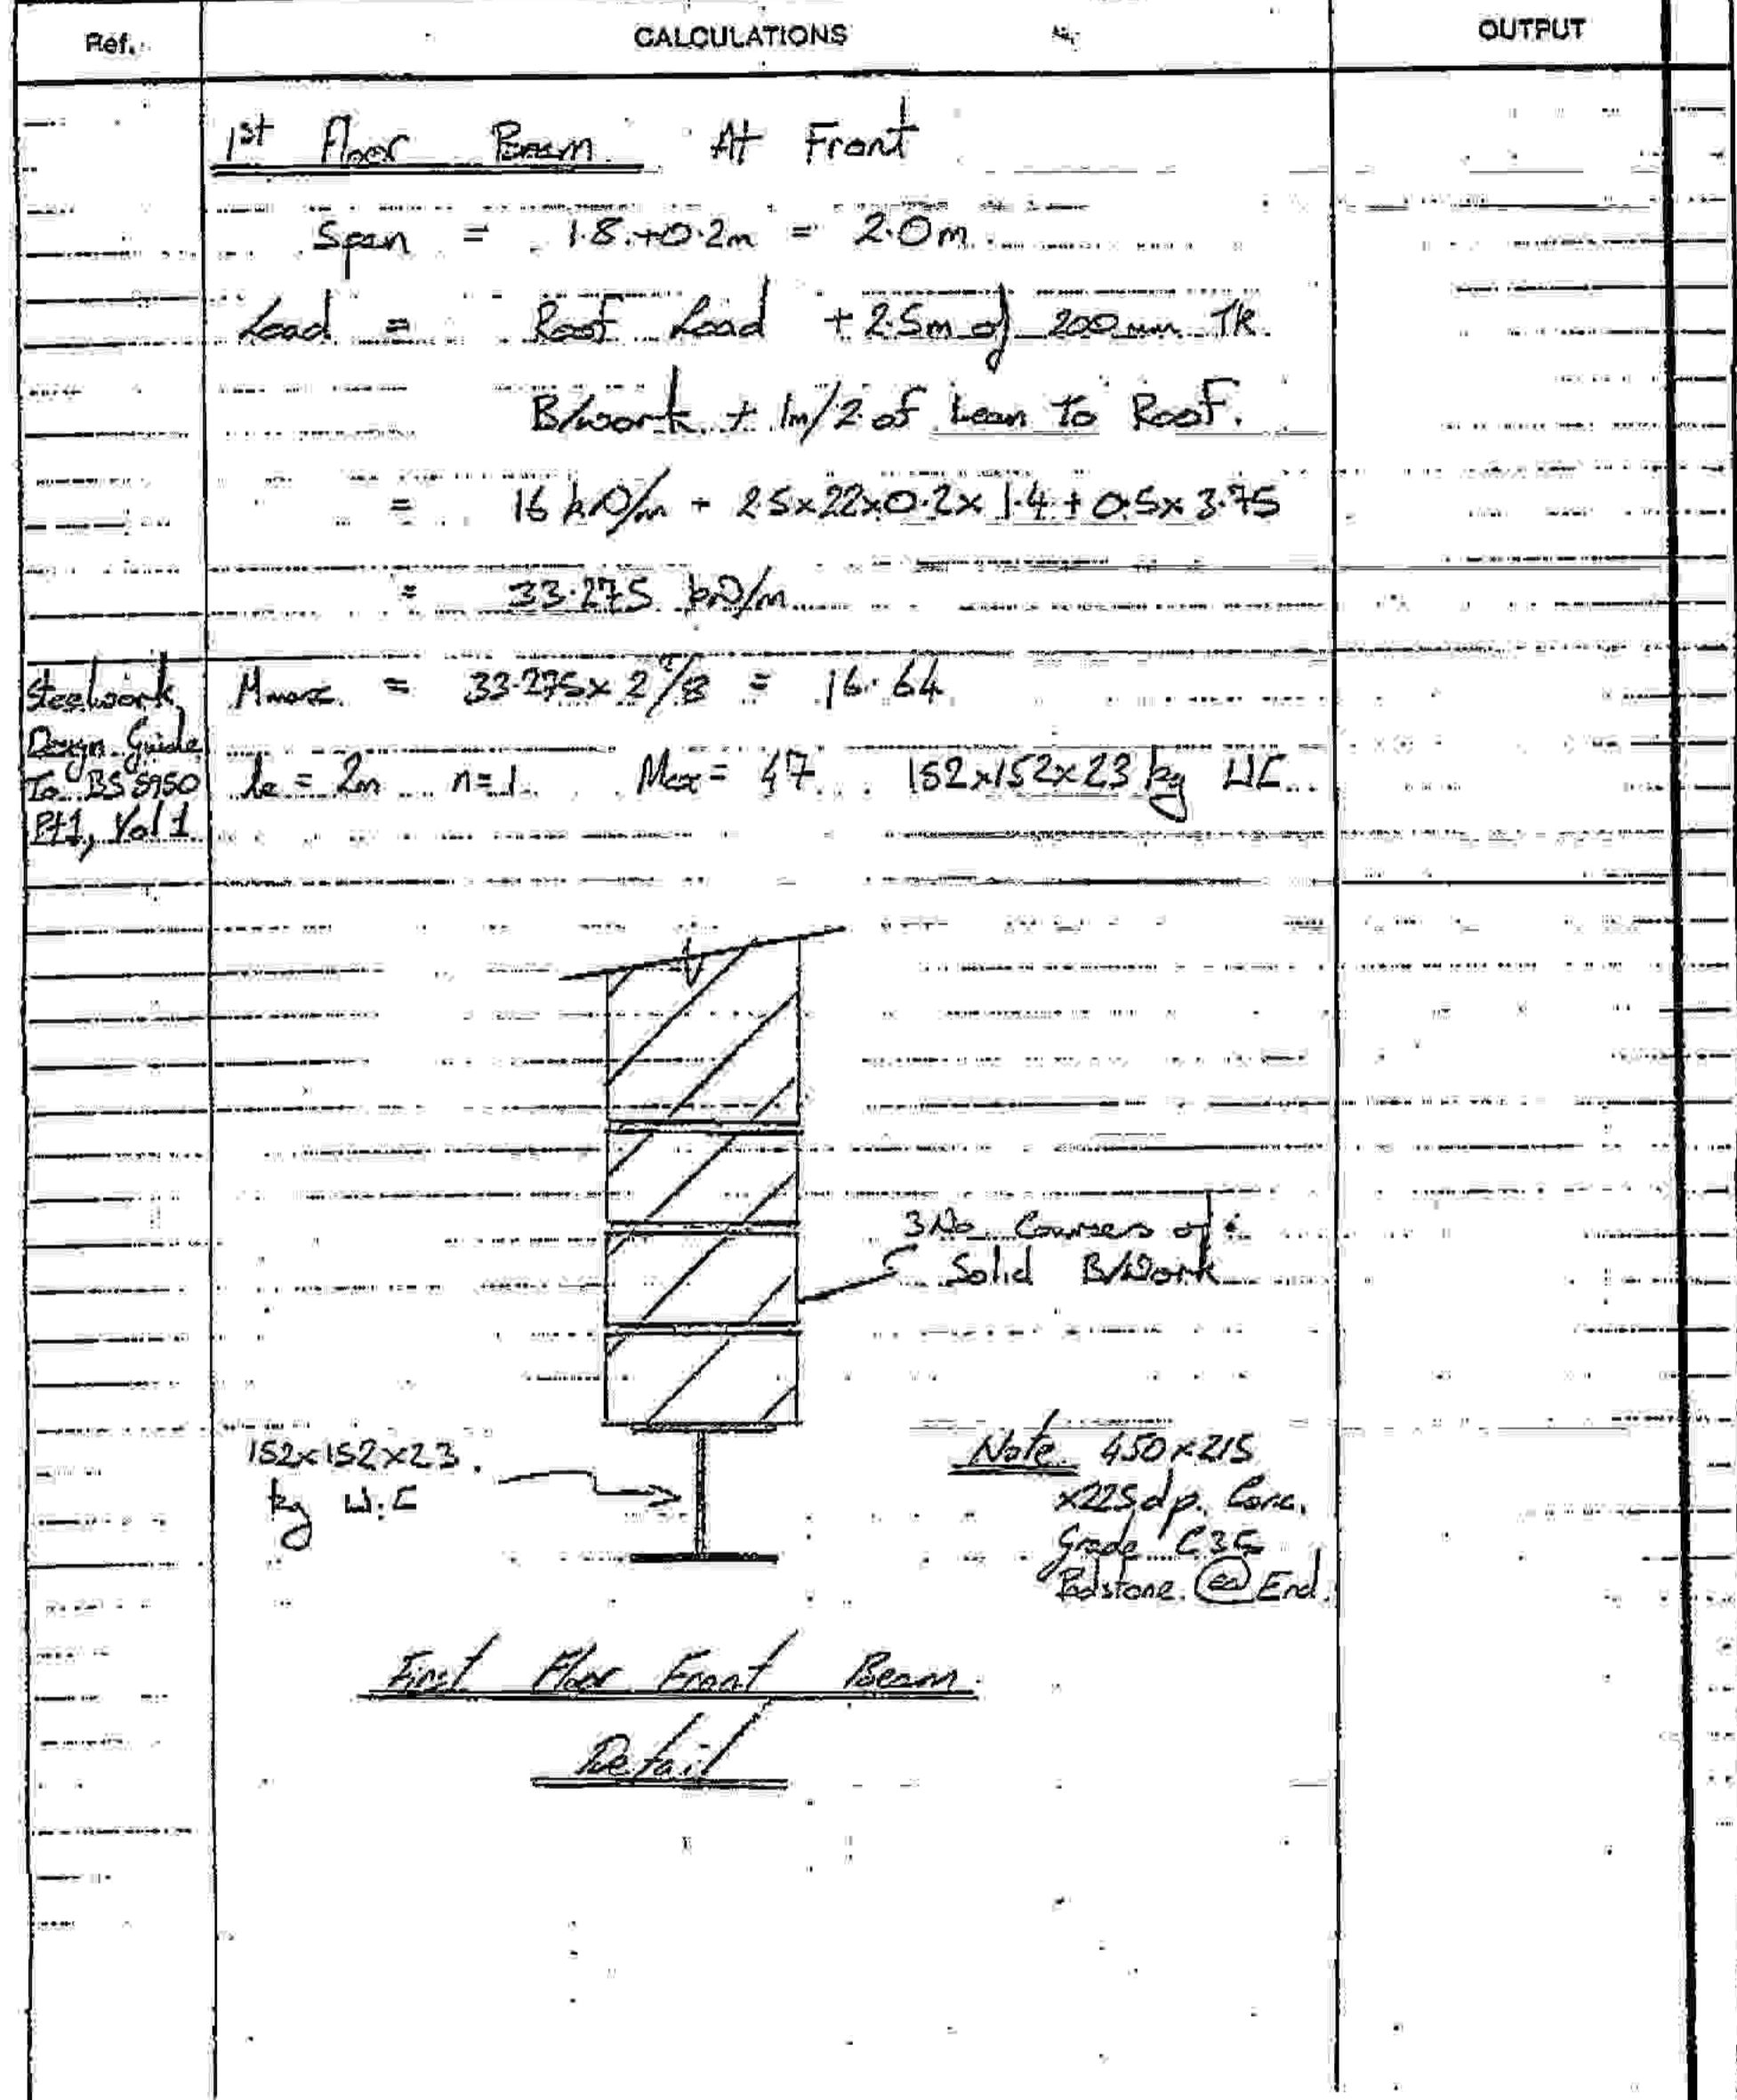 Ref.
CALCULATIONS
OUTPUT
1st Floor Beam At Front
Span = 1.8+0.2m = 2.0m
Load = Roof Load + 2.5m of 200mm TK.
B/work + 1m/2 of Lean To Roof.
= 16 kN/m + 2.5x22x0.2x1.4 + 0.5x3.75
= 33.275 kN/m
Steelwork Design Guide To BS 5950 Pt1, Vol 1
Mmax = 33.275x2²/8 = 16.64
le = 2m n=1 Mcx = 47 152x152x23 kg UC
3No Courses of
Solid B/Work
152x152x23
kg U.C
Note 450x215
x225dp. Conc.
Grade C35
Padstone @ End.
First Floor Front Beam
Detail